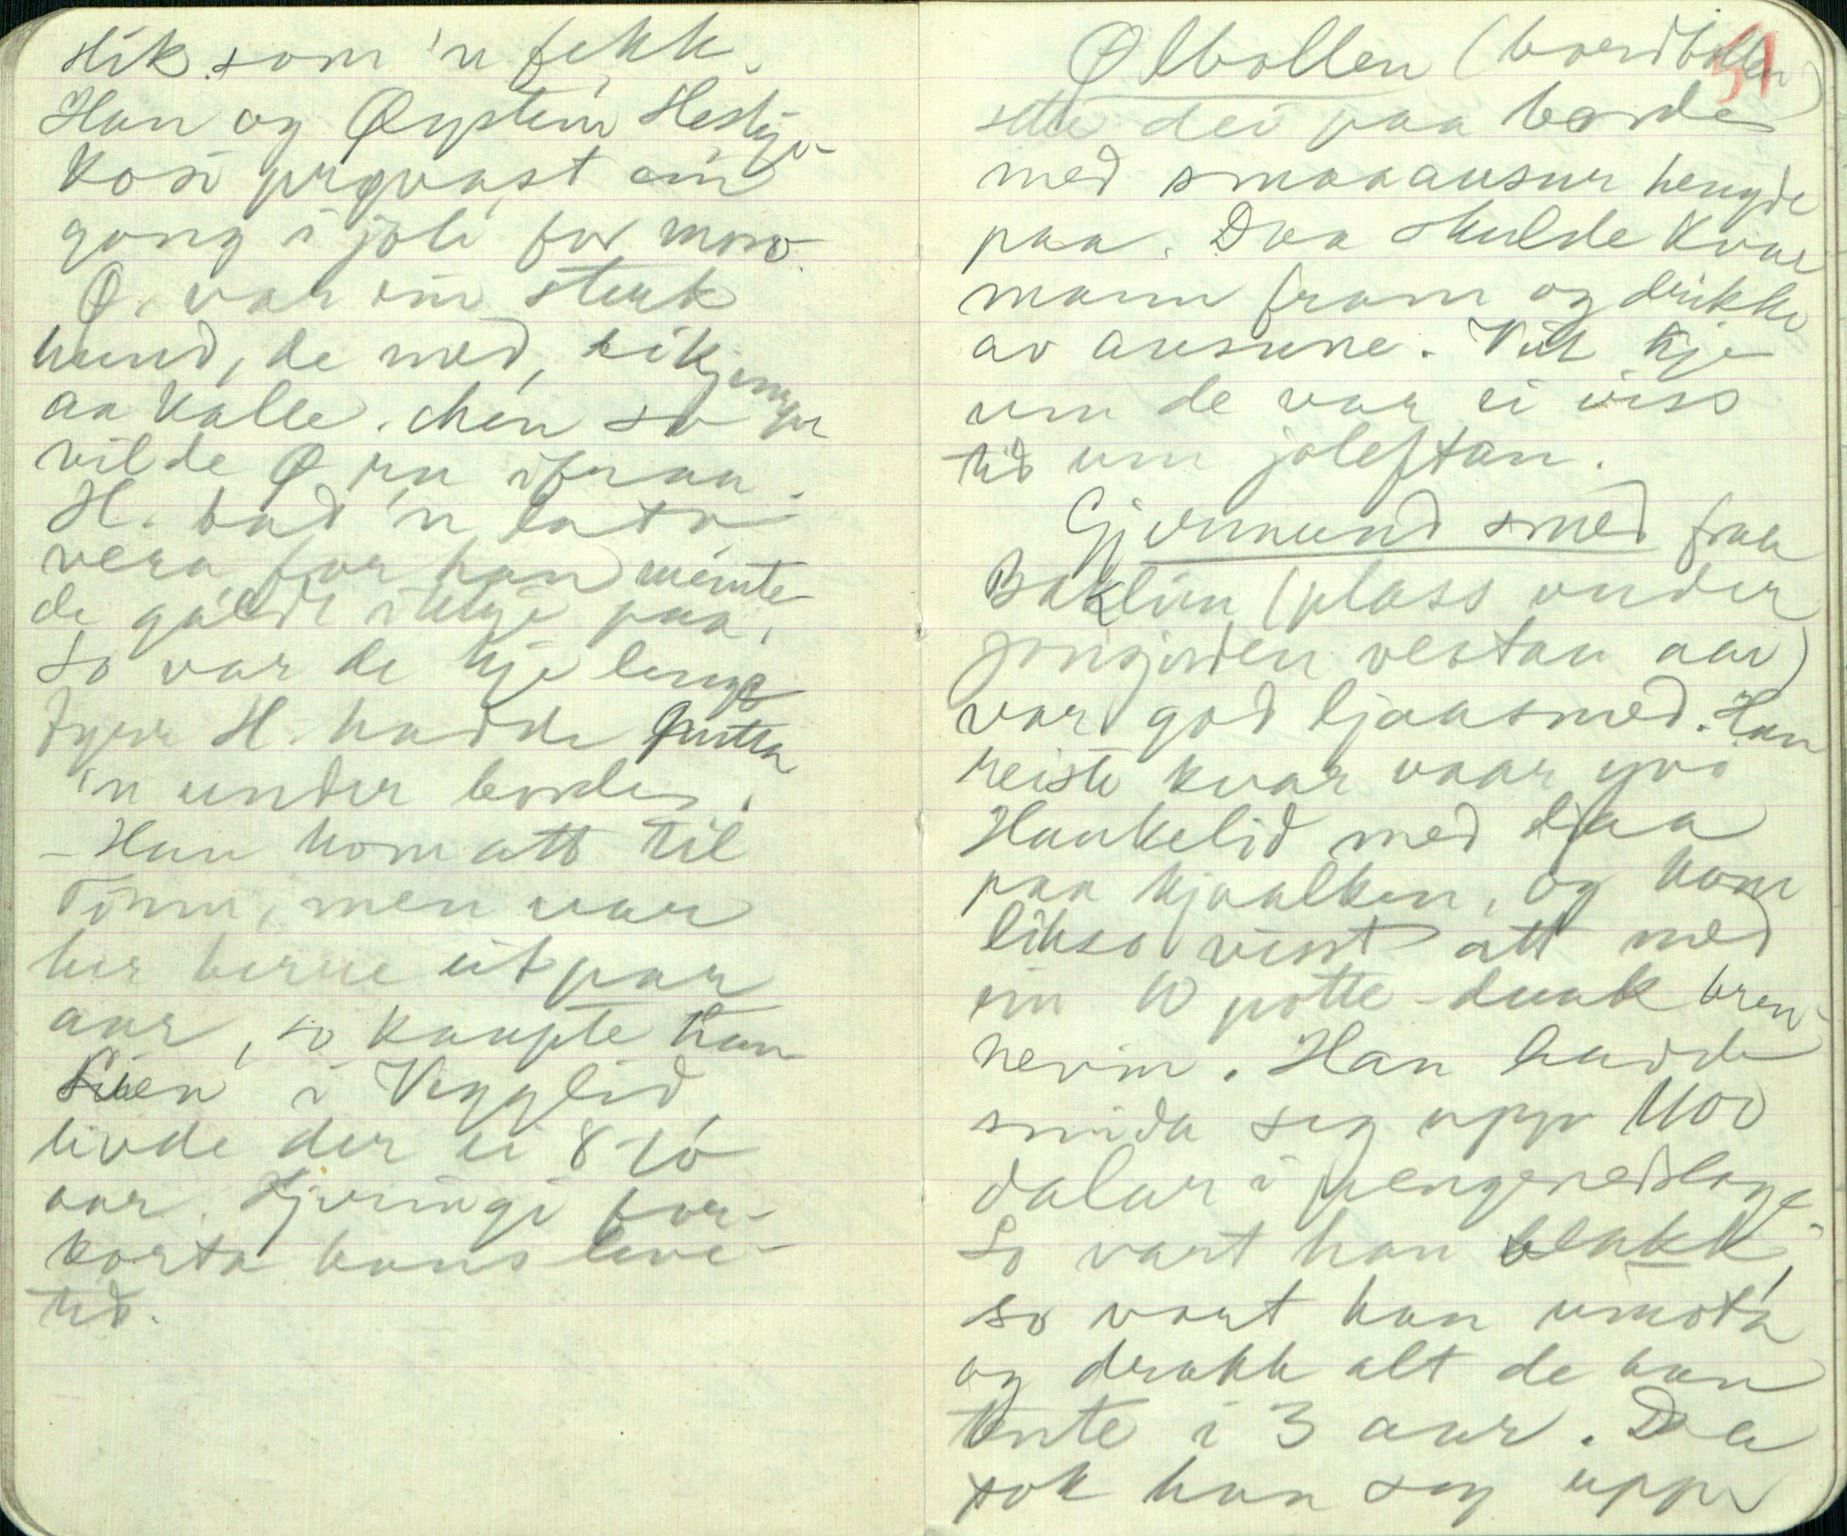 slik som 'n fekk.
Han og Øystein Hestjø-
kosi prøvast ein
gong i joli for moro.
Ø. var ein sterk
hund, de med, eikjempe
aa kalle. Men so
vilde Ø ru ifraa.
H. bad 'n lata
vera, for han meinte
de galdt ikkje paa.
So var de kje lenge
fyrr H. hadde
'n under borde.
- Han kom att til
Tinn, men var
her berre eit par
aar, so kaupte han
Lien i Vegglid,
livde der ei 8-10
aar. Kjeringi for-
korta hans leve-
tid.
51
Ølbollen (bordbollen)
sette dei paa borde
med smaaausur hengde
paa. Daa skulde kvar
mann fram og drikke
av ausune. Veit kje
um de var ei viss
tid um joleftan.
Gjermund smed fraa
Baklien (plass under
Jonsjorden vestan aai)
var god ljaasmed. Han
reiste kvar vaar yvi
Haukelid med ljaa
paa kjaalken, og kom
likso visst att med
ein 10 potte-dunk bren-
nevin. Han hadde
smida seg upp 1400
dalar i pengenedslage.
So vart han blakk,
so vart han imota
og drakk alt de han
tente i 3 aar. Daa
tok han seg uppr